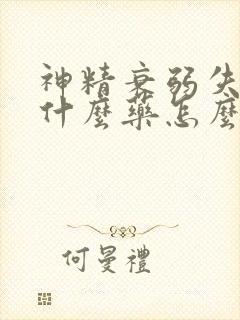 神精衰弱失
什麼藥怎麼
何曼禮